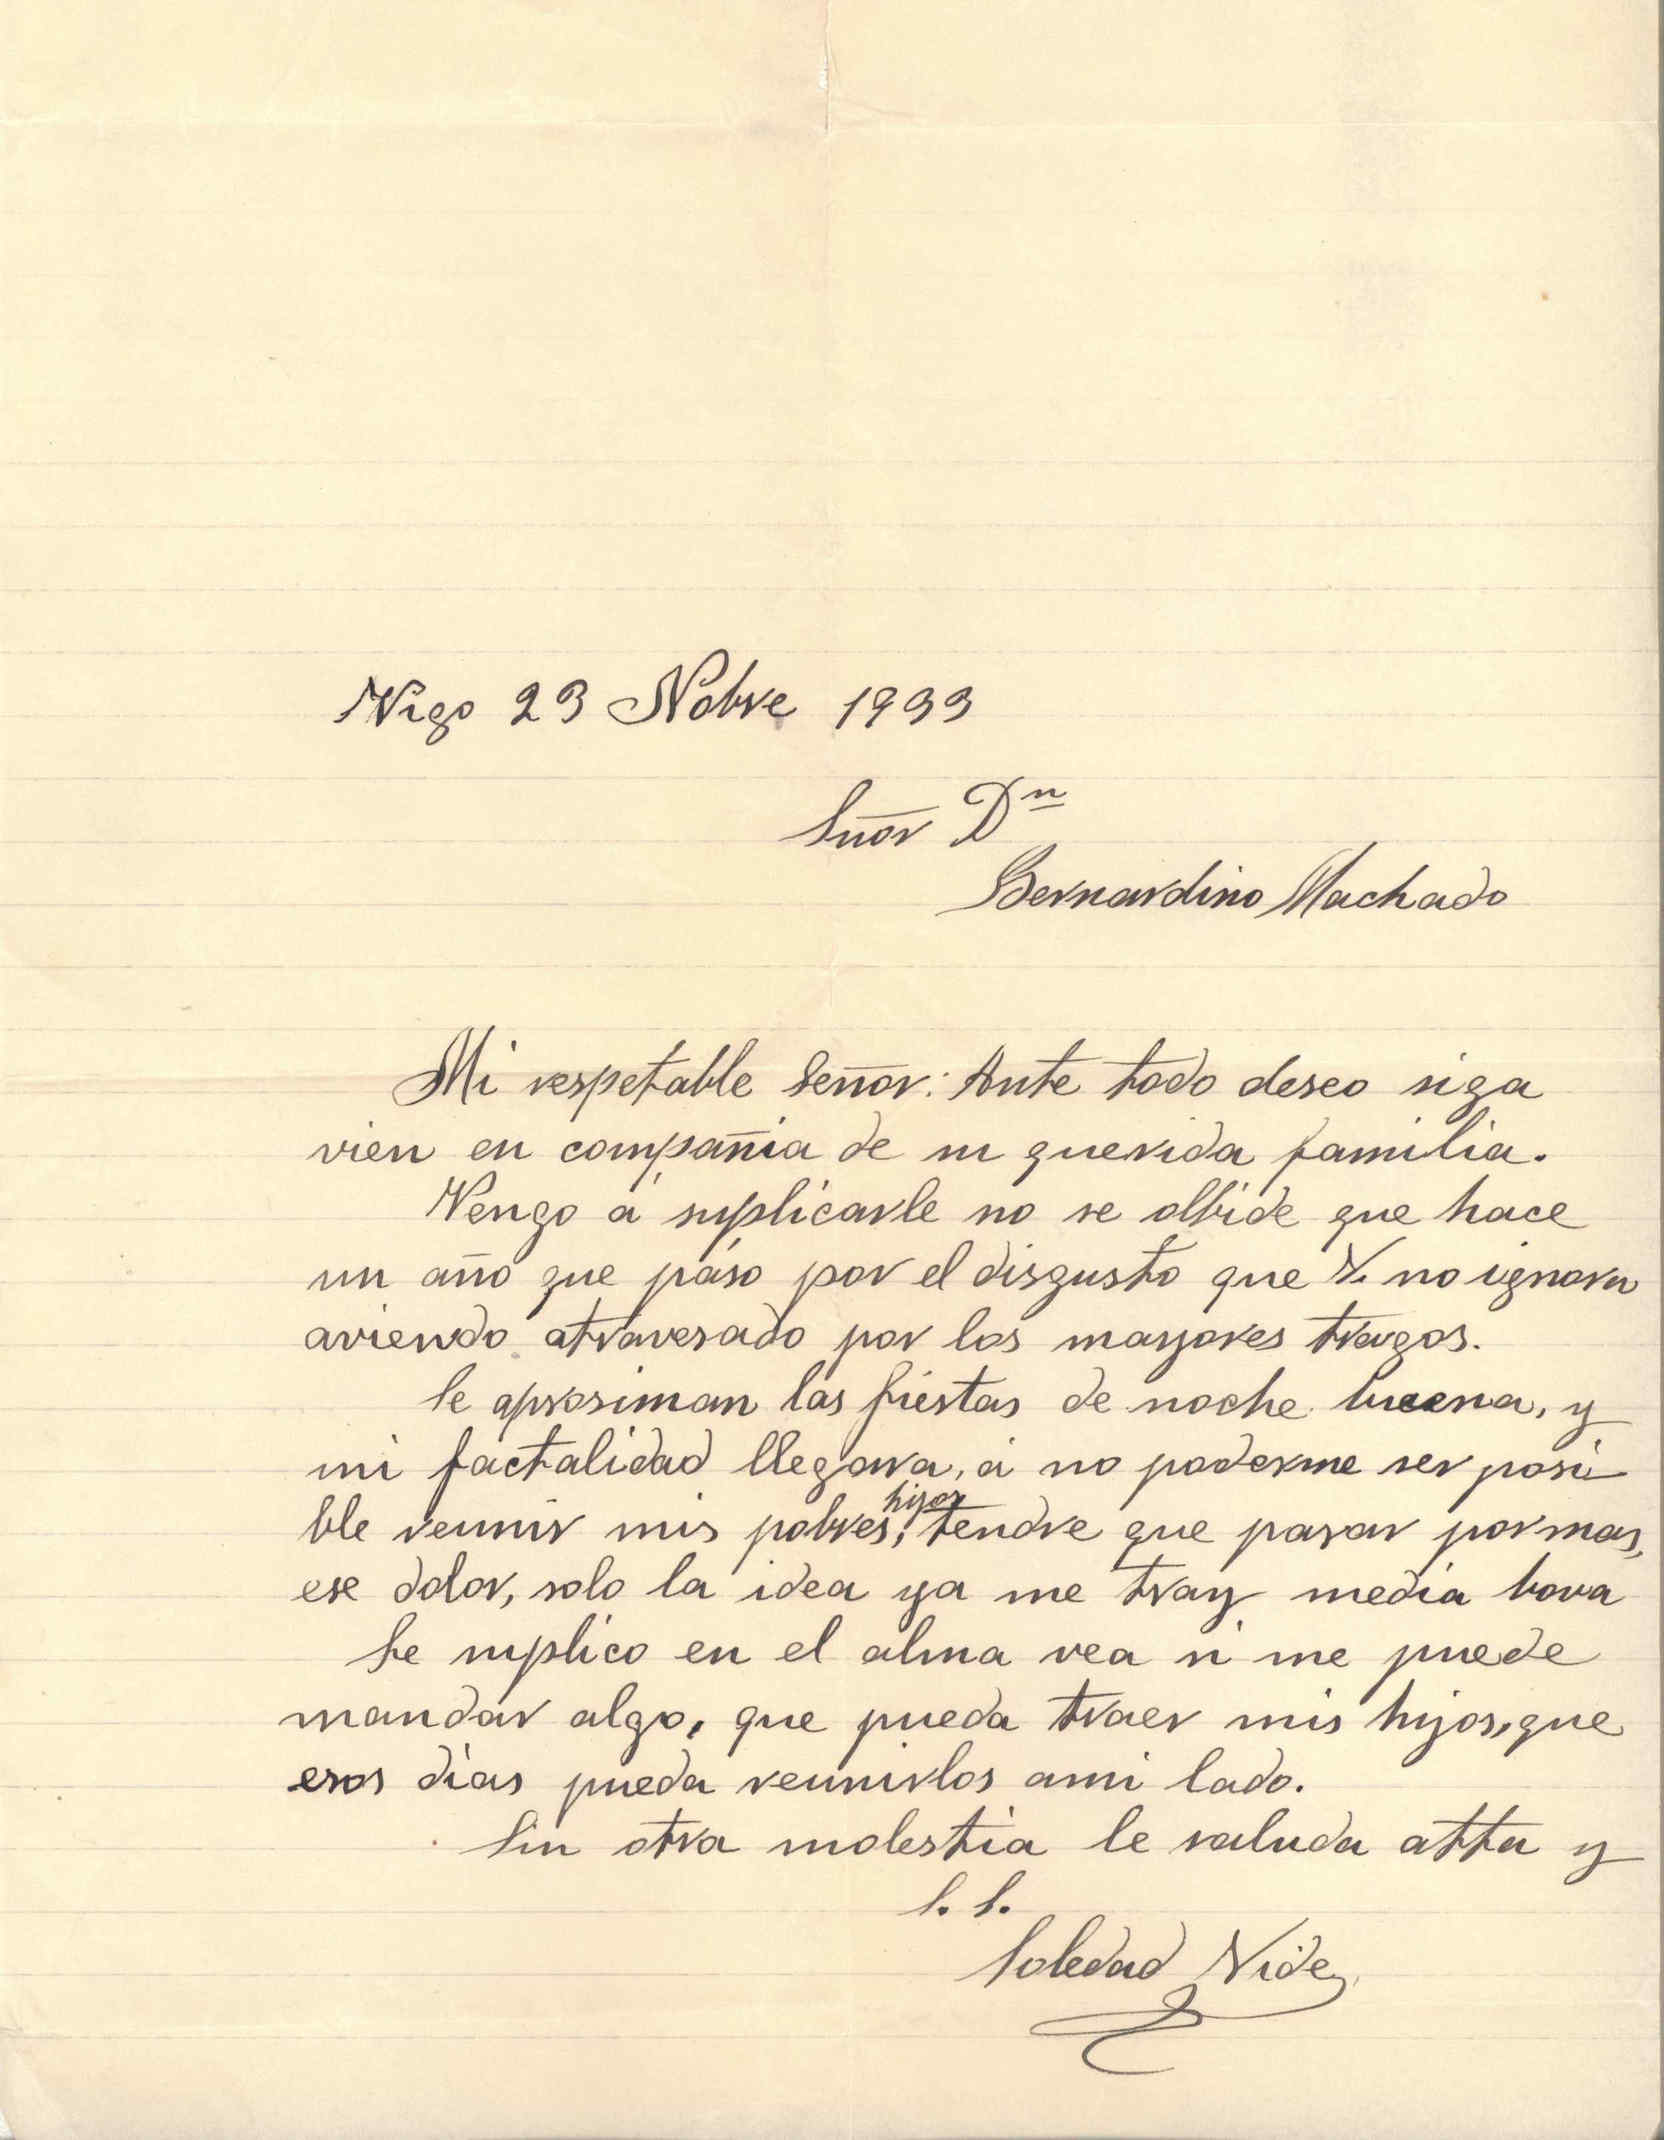 Vigo 23 Nobre 1933
Señor Dn
Bernardino Machado
Mi respetable Señor: Ante todo deseo siga
vien en compañia de su querida familia.
Vengo á suplicarle no se olbide que hace
un año que páso por el disgusto que V. no ignora
aviendo atravesado por los mayores tragos.
Se aprosiman las fiestas de noche buena, y
mi factalidad llegara, á no poderme ser posi
ble reunir mis pobres, hijos tendre que pasar por mas,
ese dolor, solo la idea ya me tray media
Le suplico en el alma vea si me puede
mandar algo, que pueda traer mis hijos, que
esos dias pueda reunirlos ami lado.
Sin otra molestia le saluda atta y
S. S.
Soledad Nide